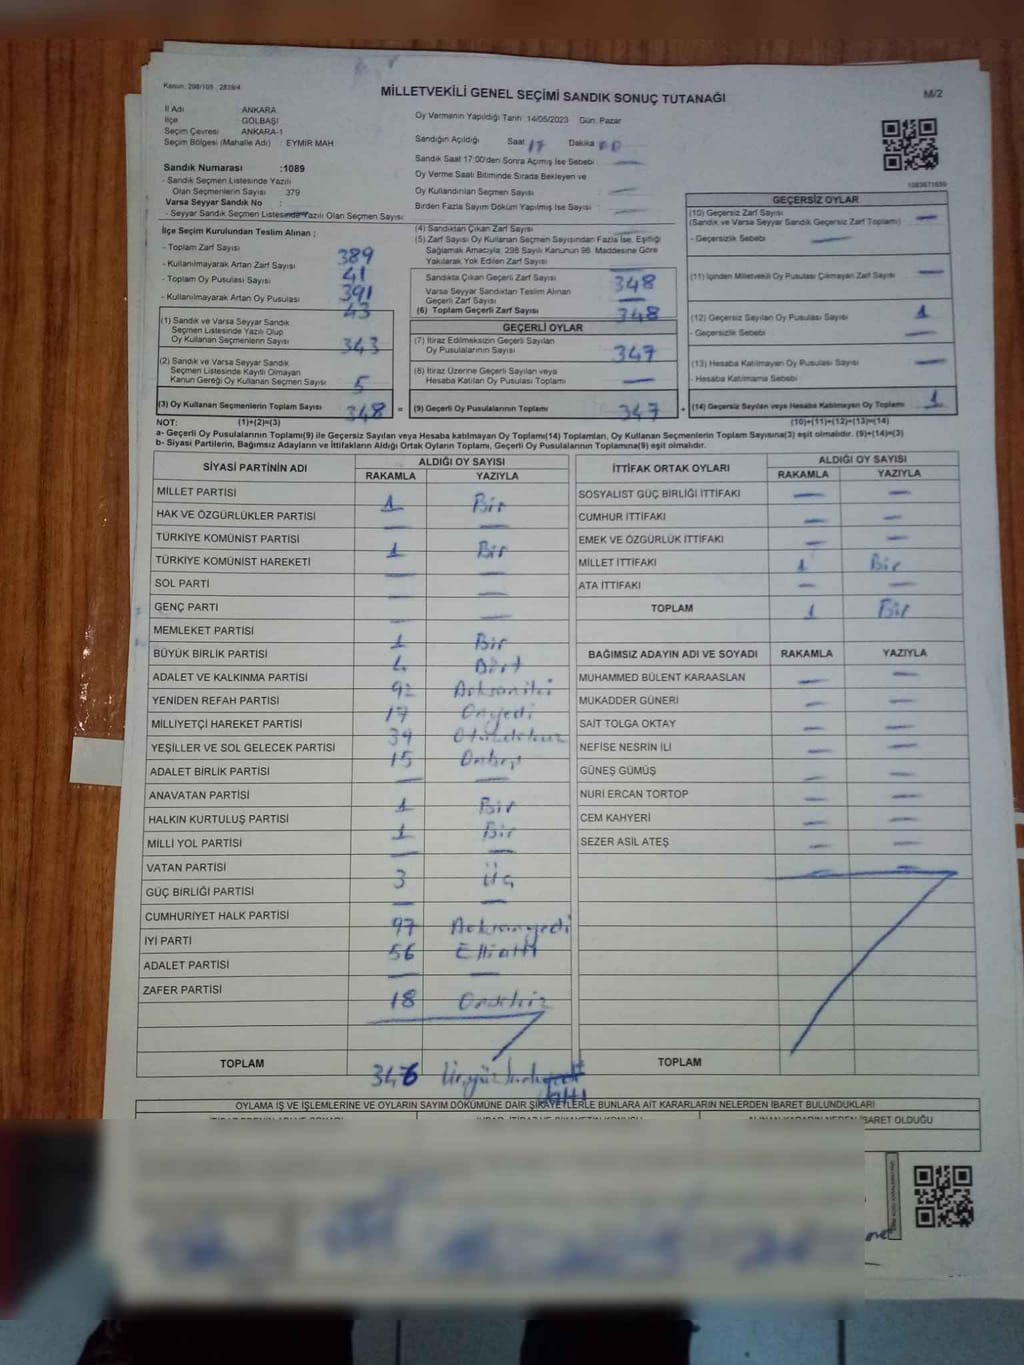 Kanun: 298/105 , 2839/4
MİLLETVEKİLİ GENEL SEÇİMİ SANDIK SONUÇ TUTANAĞI
M/2
İl Adı ANKARA
İlçe GÖLBAŞI
Seçim Çevresi ANKARA-1
Seçim Bölgesi (Mahalle Adı) : EYMİR MAH
Oy Vermenin Yapıldığı Tarih :14/05/2023 Gün: Pazar
Sandığın Açıldığı Saat 17 Dakika 00
Sandık Saat 17:00'den Sonra Açılmış İse Sebebi : —
Oy Verme Saati Bitiminde Sırada Bekleyen ve
Oy Kullandırılan Seçmen Sayısı —
Birden Fazla Sayım Döküm Yapılmış İse Sayısı : —
Sandık Numarası :1089
- Sandık Seçmen Listesinde Yazılı
Olan Seçmenlerin Sayısı 379
Varsa Seyyar Sandık No :
- Seyyar Sandık Seçmen Listesinde Yazılı Olan Seçmen Sayısı
İlçe Seçim Kurulundan Teslim Alınan ;
- Toplam Zarf Sayısı 389
- Kullanılmayarak Artan Zarf Sayısı 41
- Toplam Oy Pusulası Sayısı 391
- Kullanılmayarak Artan Oy Pusulası 43
(1) Sandık ve Varsa Seyyar Sandık
Seçmen Listesinde Yazılı Olup
Oy Kullanan Seçmenlerin Sayısı 343
(2) Sandık ve Varsa Seyyar Sandık
Seçmen Listesinde Kayıtlı Olmayan
Kanun Gereği Oy Kullanan Seçmen Sayısı 5
(3) Oy Kullanan Seçmenlerin Toplam Sayısı 348 =
(4) Sandıktan Çıkan Zarf Sayısı —
(5) Zarf Sayısı Oy Kullanan Seçmen Sayısından Fazla İse, Eşitliği
Sağlamak Amacıyla; 298 Sayılı Kanunun 98. Maddesine Göre
Yakılarak Yok Edilen Zarf Sayısı —
Sandıkta Çıkan Geçerli Zarf Sayısı 348
Varsa Seyyar Sandıktan Teslim Alınan
Geçerli Zarf Sayısı —
(6) Toplam Geçerli Zarf Sayısı 348
GEÇERLİ OYLAR
(7) İtiraz Edilmeksizin Geçerli Sayılan
Oy Pusulalarının Sayısı 347
(8) İtiraz Üzerine Geçerli Sayılan veya
Hesaba Katılan Oy Pusulası Toplamı —
(9) Geçerli Oy Pusulalarının Toplamı 347 +
GEÇERSİZ OYLAR
(10) Geçersiz Zarf Sayısı —
(Sandık ve Varsa Seyyar Sandık Geçersiz Zarf Toplamı)
- Geçersizlik Sebebi —
(11) İçinden Milletvekili Oy Pusulası Çıkmayan Zarf Sayısı —
(12) Geçersiz Sayılan Oy Pusulası Sayısı 1
- Geçersizlik Sebebi —
(13) Hesaba Katılmayan Oy Pusulası Sayısı —
- Hesaba Katılmama Sebebi
(14) Geçersiz Sayılan veya Hesaba Katılmayan Oy Toplamı 1
NOT: (1)+(2)=(3) (10)+(11)+(12)+(13)=(14)
a- Geçerli Oy Pusulalarının Toplamı(9) ile Geçersiz Sayılan veya Hesaba katılmayan Oy Toplamı(14) Toplamları, Oy Kullanan Seçmenlerin Toplam Sayısına(3) eşit olmalıdır. (9)+(14)=(3)
b- Siyasi Partilerin, Bağımsız Adayların ve İttifakların Aldığı Ortak Oyların Toplamı, Geçerli Oy Pusulalarının Toplamına(9) eşit olmalıdır.
SİYASİ PARTİNİN ADI ALDIĞI OY SAYISI
RAKAMLA YAZIYLA
MİLLET PARTİSİ 1 Bir
HAK VE ÖZGÜRLÜKLER PARTİSİ — —
TÜRKİYE KOMÜNİST PARTİSİ 1 Bir
TÜRKİYE KOMÜNİST HAREKETİ — —
SOL PARTİ — —
GENÇ PARTİ — —
MEMLEKET PARTİSİ 1 Bir
BÜYÜK BİRLİK PARTİSİ 4 Dört
ADALET VE KALKINMA PARTİSİ 92
YENİDEN REFAH PARTİSİ 17 Onyedi
MİLLİYETÇİ HAREKET PARTİSİ 39 Otuzdokuz
YEŞİLLER VE SOL GELECEK PARTİSİ 15 Onbeş
ADALET BİRLİK PARTİSİ — —
ANAVATAN PARTİSİ 1 Bir
HALKIN KURTULUŞ PARTİSİ 1 Bir
MİLLİ YOL PARTİSİ — —
VATAN PARTİSİ 3 Üç
GÜÇ BİRLİĞİ PARTİSİ — —
CUMHURİYET HALK PARTİSİ 97
İYİ PARTİ 56 Elliatlı
ADALET PARTİSİ — —
ZAFER PARTİSİ 18 Onsekiz
TOPLAM 346
İTTİFAK ORTAK OYLARI ALDIĞI OY SAYISI
RAKAMLA YAZIYLA
SOSYALİST GÜÇ BİRLİĞİ İTTİFAKI — —
CUMHUR İTTİFAKI — —
EMEK VE ÖZGÜRLÜK İTTİFAKI — —
MİLLET İTTİFAKI 1 Bir
ATA İTTİFAKI — —
TOPLAM 1 Bir
BAĞIMSIZ ADAYIN ADI VE SOYADI RAKAMLA YAZIYLA
MUHAMMED BÜLENT KARAASLAN — —
MUKADDER GÜNERİ — —
SAİT TOLGA OKTAY — —
NEFİSE NESRİN İLİ — —
GÜNEŞ GÜMÜŞ — —
NURİ ERCAN TORTOP — —
CEM KAHYERİ — —
SEZER ASİL ATEŞ — —
TOPLAM
OYLAMA İŞ VE İŞLEMLERİNE VE OYLARIN SAYIM DÖKÜMÜNE DAİR ŞİKAYETLERLE BUNLARA AİT KARARLARIN NELERDEN İBARET BULUNDUKLARI